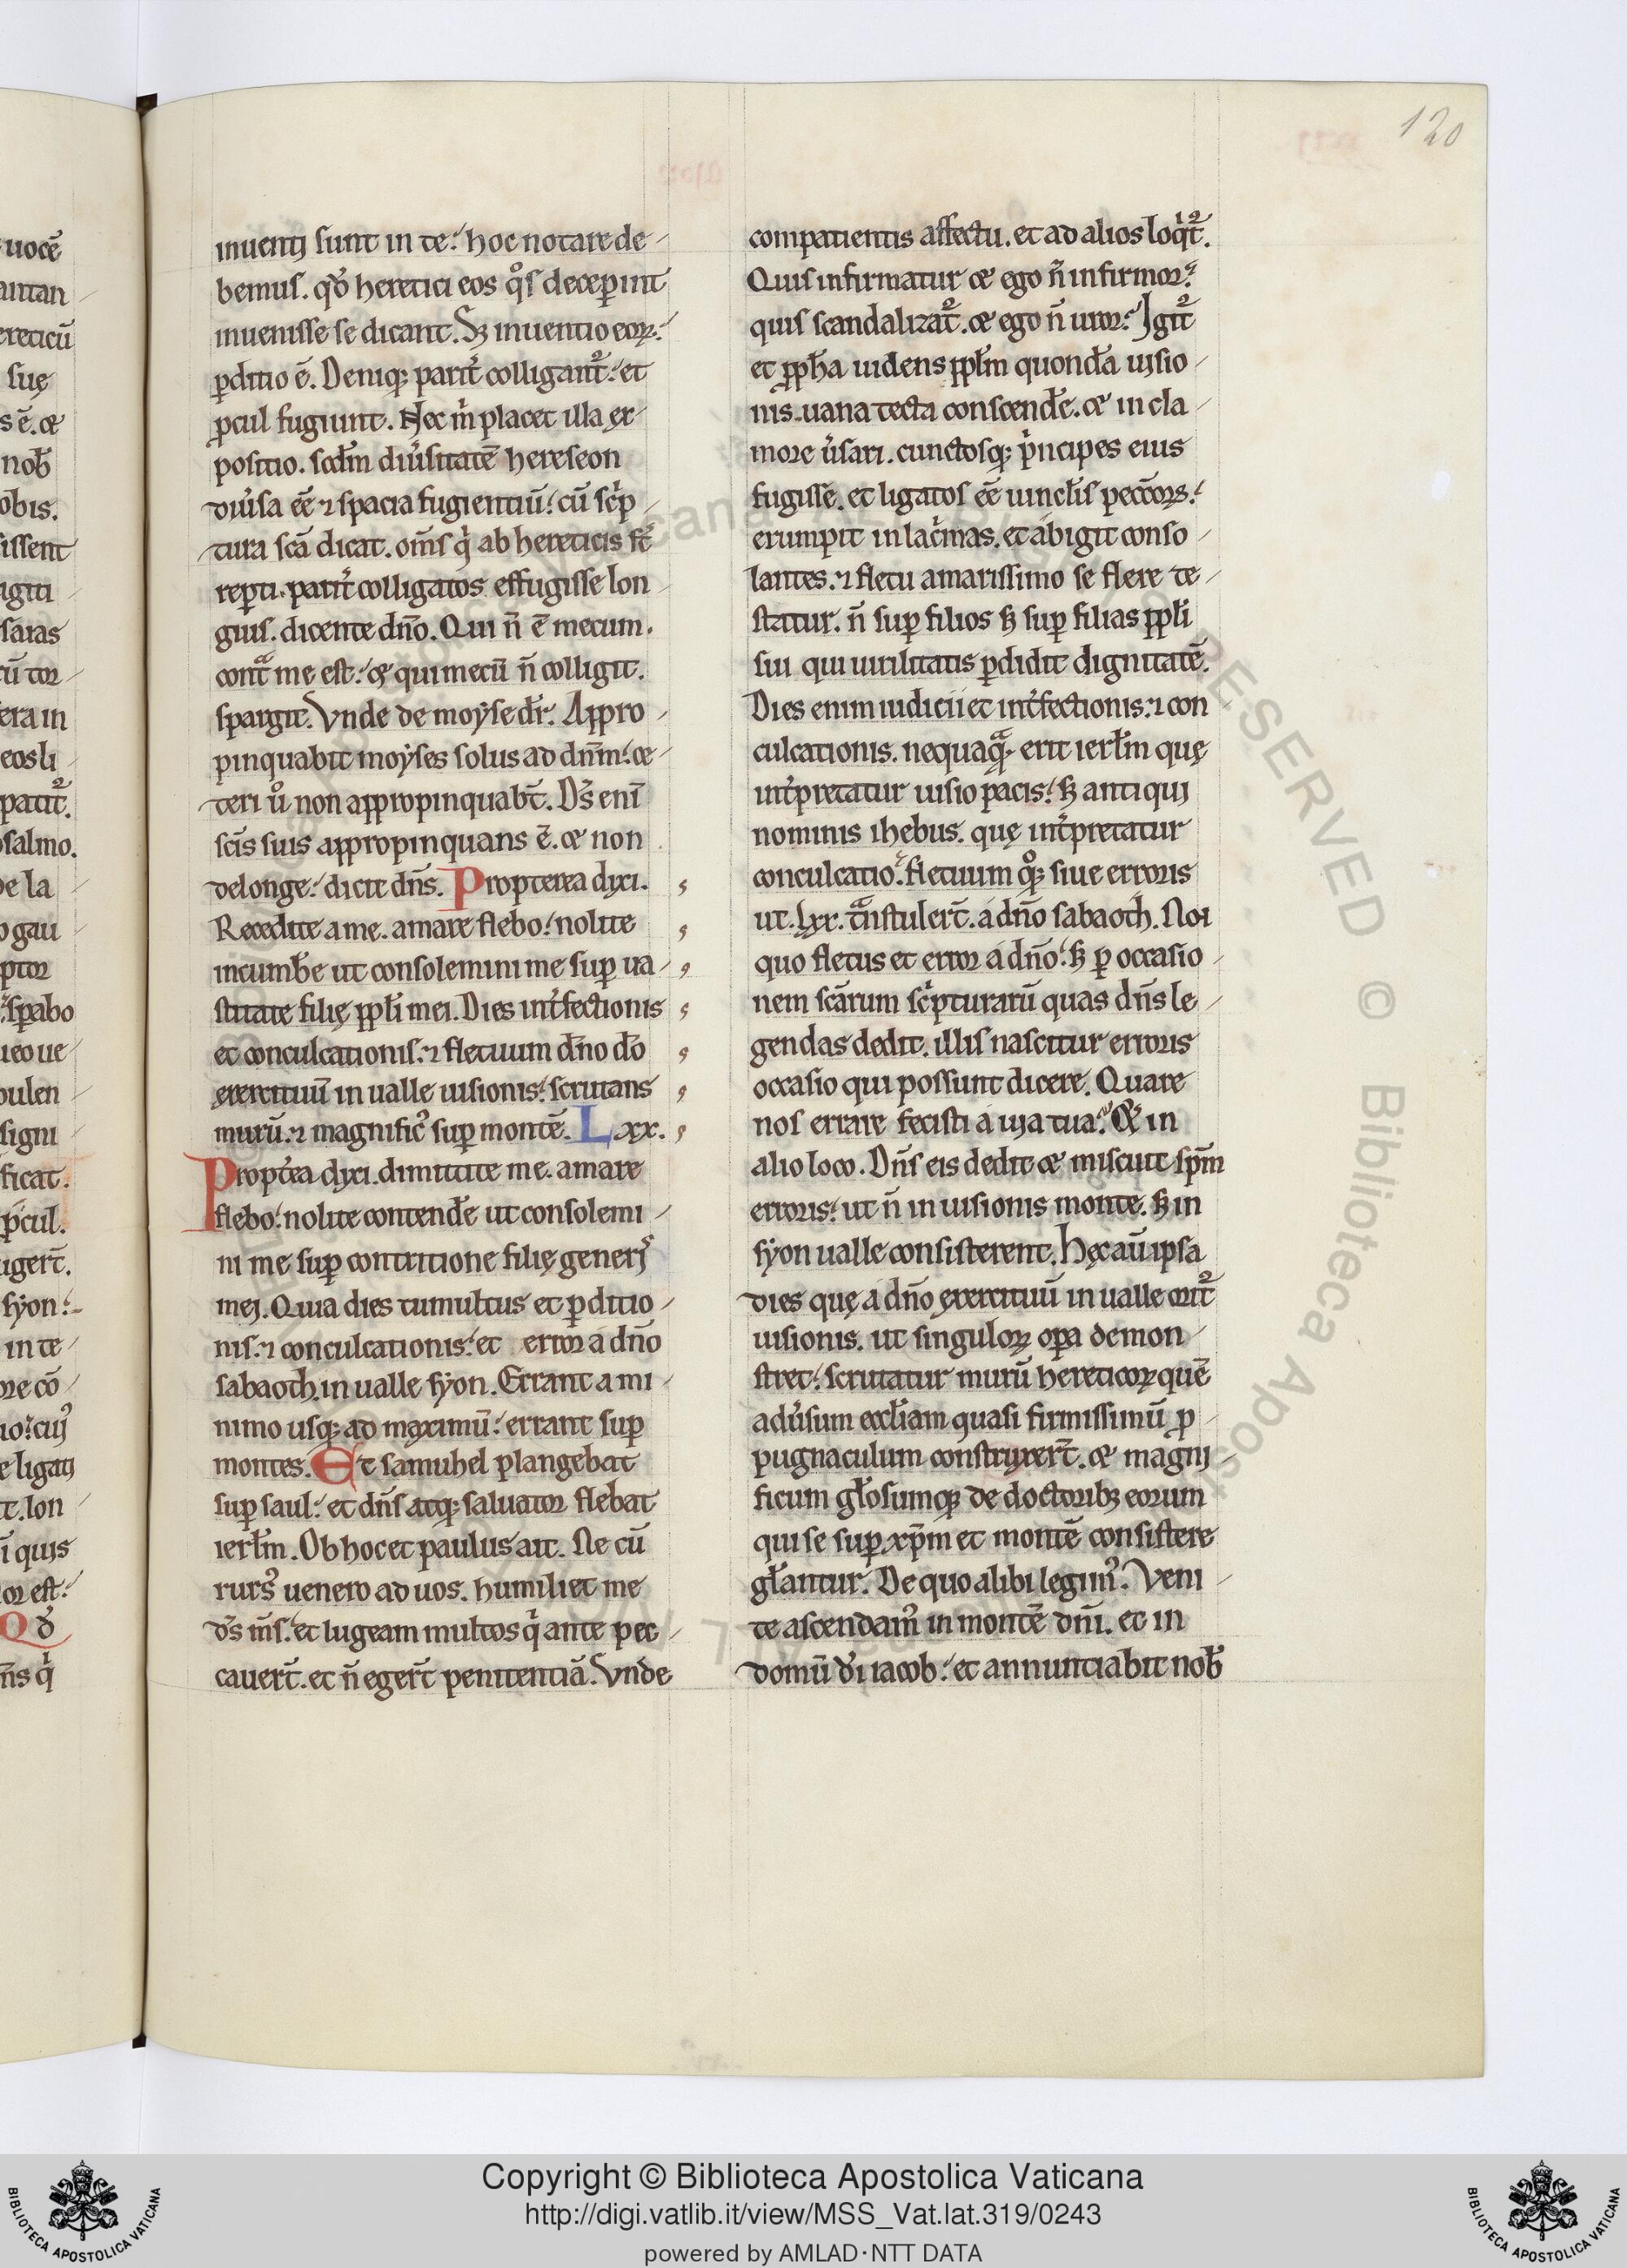 120
inuentj sunt in te. hoc notare de
bemus. qđ heretici eos q̊s deceꝑint
inuenisse se dicant. Sꝫ inuentio eoꝝ.
ꝑditio ē. Deniqꝫ parit̉ colligant᷑. et
ꝓcul fugiunt. Nec m̍ placet illa ex
positio. scđm diu̓sitatē hereseon
diu̓sa eē ⁊ spacia fugientiū. cū sc̍p
tura scā dicat. om̄s q̍ ab hereticis st̄
reꝑti. parit̉ colligatos effugisse lon
gius. dicente dn̄o. Qui n̄ ē mecum.
contᷓ me est. & qui mecū n̄ colligit.
spargit. Vnde de moẏse dr̄. Appro
pinquabit moẏses solus ad dn̄m. ce
teri ů non appropinquabt̄. Ds̄ enī
scīs suis appropinquans ē. & non
delonge. dicit dn̄s. Propterea dyxi.
Recedite a me. amare flebo. nolite
incumƀe ut consolemini me suꝑ ua
stitate filię ppłi mei. Dies int̉fectionis
et conculcationis. ⁊ fletuum dn̄o đo
exercituū in ualle uisionis. scrutans
murū. ⁊ magnific᷒ suꝑ montē. Lxx.
Propt̉ea dyxi. dimittite me. amare
flebo. nolite contenđe ut consolemi
ni me suꝑ contritione filię generj᷒
mej. Quia dies tumultus et ꝑditio
nis. ⁊ conculcationis. et error a dn̄o
sabaoth. in ualle sẏon. Errant a mi
nimo usqꝫ ad maximū. errant suꝑ
montes. Et samuhel plangebat
suꝑ saul. et dn̄s atqꝫ saluator flebat
ierłm. Ob hoc et paulus ait. Ne cū
rurs᷒ uenero ad uos. humiliet me
ds̄ m̄s. et lugeam multos q̍ ante pec
cauert̄. et n̄ egert̄ penitentiā. Vnde
compatientis affectu. et ad alios loq̍t᷑.
Quis infirmatur & ego n̄ infirmor.
quis scandalizat᷑. & ego n̄ uror. Igit᷑
et ꝓpħa uidens ppłm quondā uisio
nis. uana tecta conscenđe. & in cla
more u̓sari. cunctosqꝫ p̍ncipes eius
fugisse. et ligatos eē uincłis pecc̄oꝝ.
erumpit in lac̍mas. et abigit conso
lantes. ⁊ fletu amarissimo se flere te
statur. n̄ suꝑ filios sꝫ suꝑ filias ppłi
sui qui uirilitatis ꝑdidit dignitatē.
Dies enim iudicii et int̉fectionis. ⁊ con
culcationis. nequaqᷓ erit ierłm quę
int̉pretatur uisio pacis. sꝫ antiqui
nominis ihebus. quę int̉pretatur
conculcatio. fletuum q̊qꝫ siue erroris
ut. lxx. tᷓnstulert̄. a dn̄o sabaoth. Non
quo fletus et error a dn̄o. sꝫ ꝑ occasio
nem scārum sc̍pturarū quas dn̄s le
gendas dedit. illis nascitur erroris
occasio qui possunt dicere. Quare
nos errare fecisti a uia tua. & in
alio loco. Dn̄s eis dedit & miscuit spm̄
erroris. ut n̄ in uisionis monte. sꝫ in
sẏon ualle consisterent. Hęc aū ipsa
dies quę a dn̄o exercituū in ualle orit᷑
uisionis. ut singuloꝝ oꝑa demon
stret. scrutatur murū hereticoꝝ quē
adu̓sum ecclīam quasi firmissimū ꝓ
pugnaculum construxert̄. & magni
ficum głosumqꝫ de doctoribꝫ eorum
qui se suꝑ xp̄m et montē consistere
głantur. De quo alibi legim᷒. Veni
te ascendam᷒ in montē dn̄i. et in
domū đi iacob. et annuntiabit noƀ
Copyright © Biblioteca Apostolica Vaticana
http://digi.vatlib.it/view/MSS_Vat.lat.319/0243
powered by AMLAD·NTT DATA
BIBLIOTECA APOSTOLICA VATICANA
BIBLIOTECA APOSTOLICA VATICANA